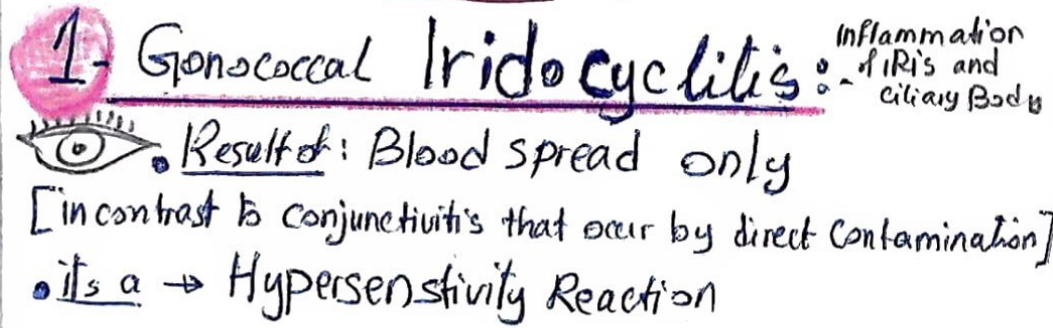 1- Gonococcal Iridocyclitis :-
Inflammation
of iRis and
ciliary Body
• Result of : Blood spread only
[in contrast to conjunctivitis that occur by direct contamination]
• its a → Hypersenstivity Reaction